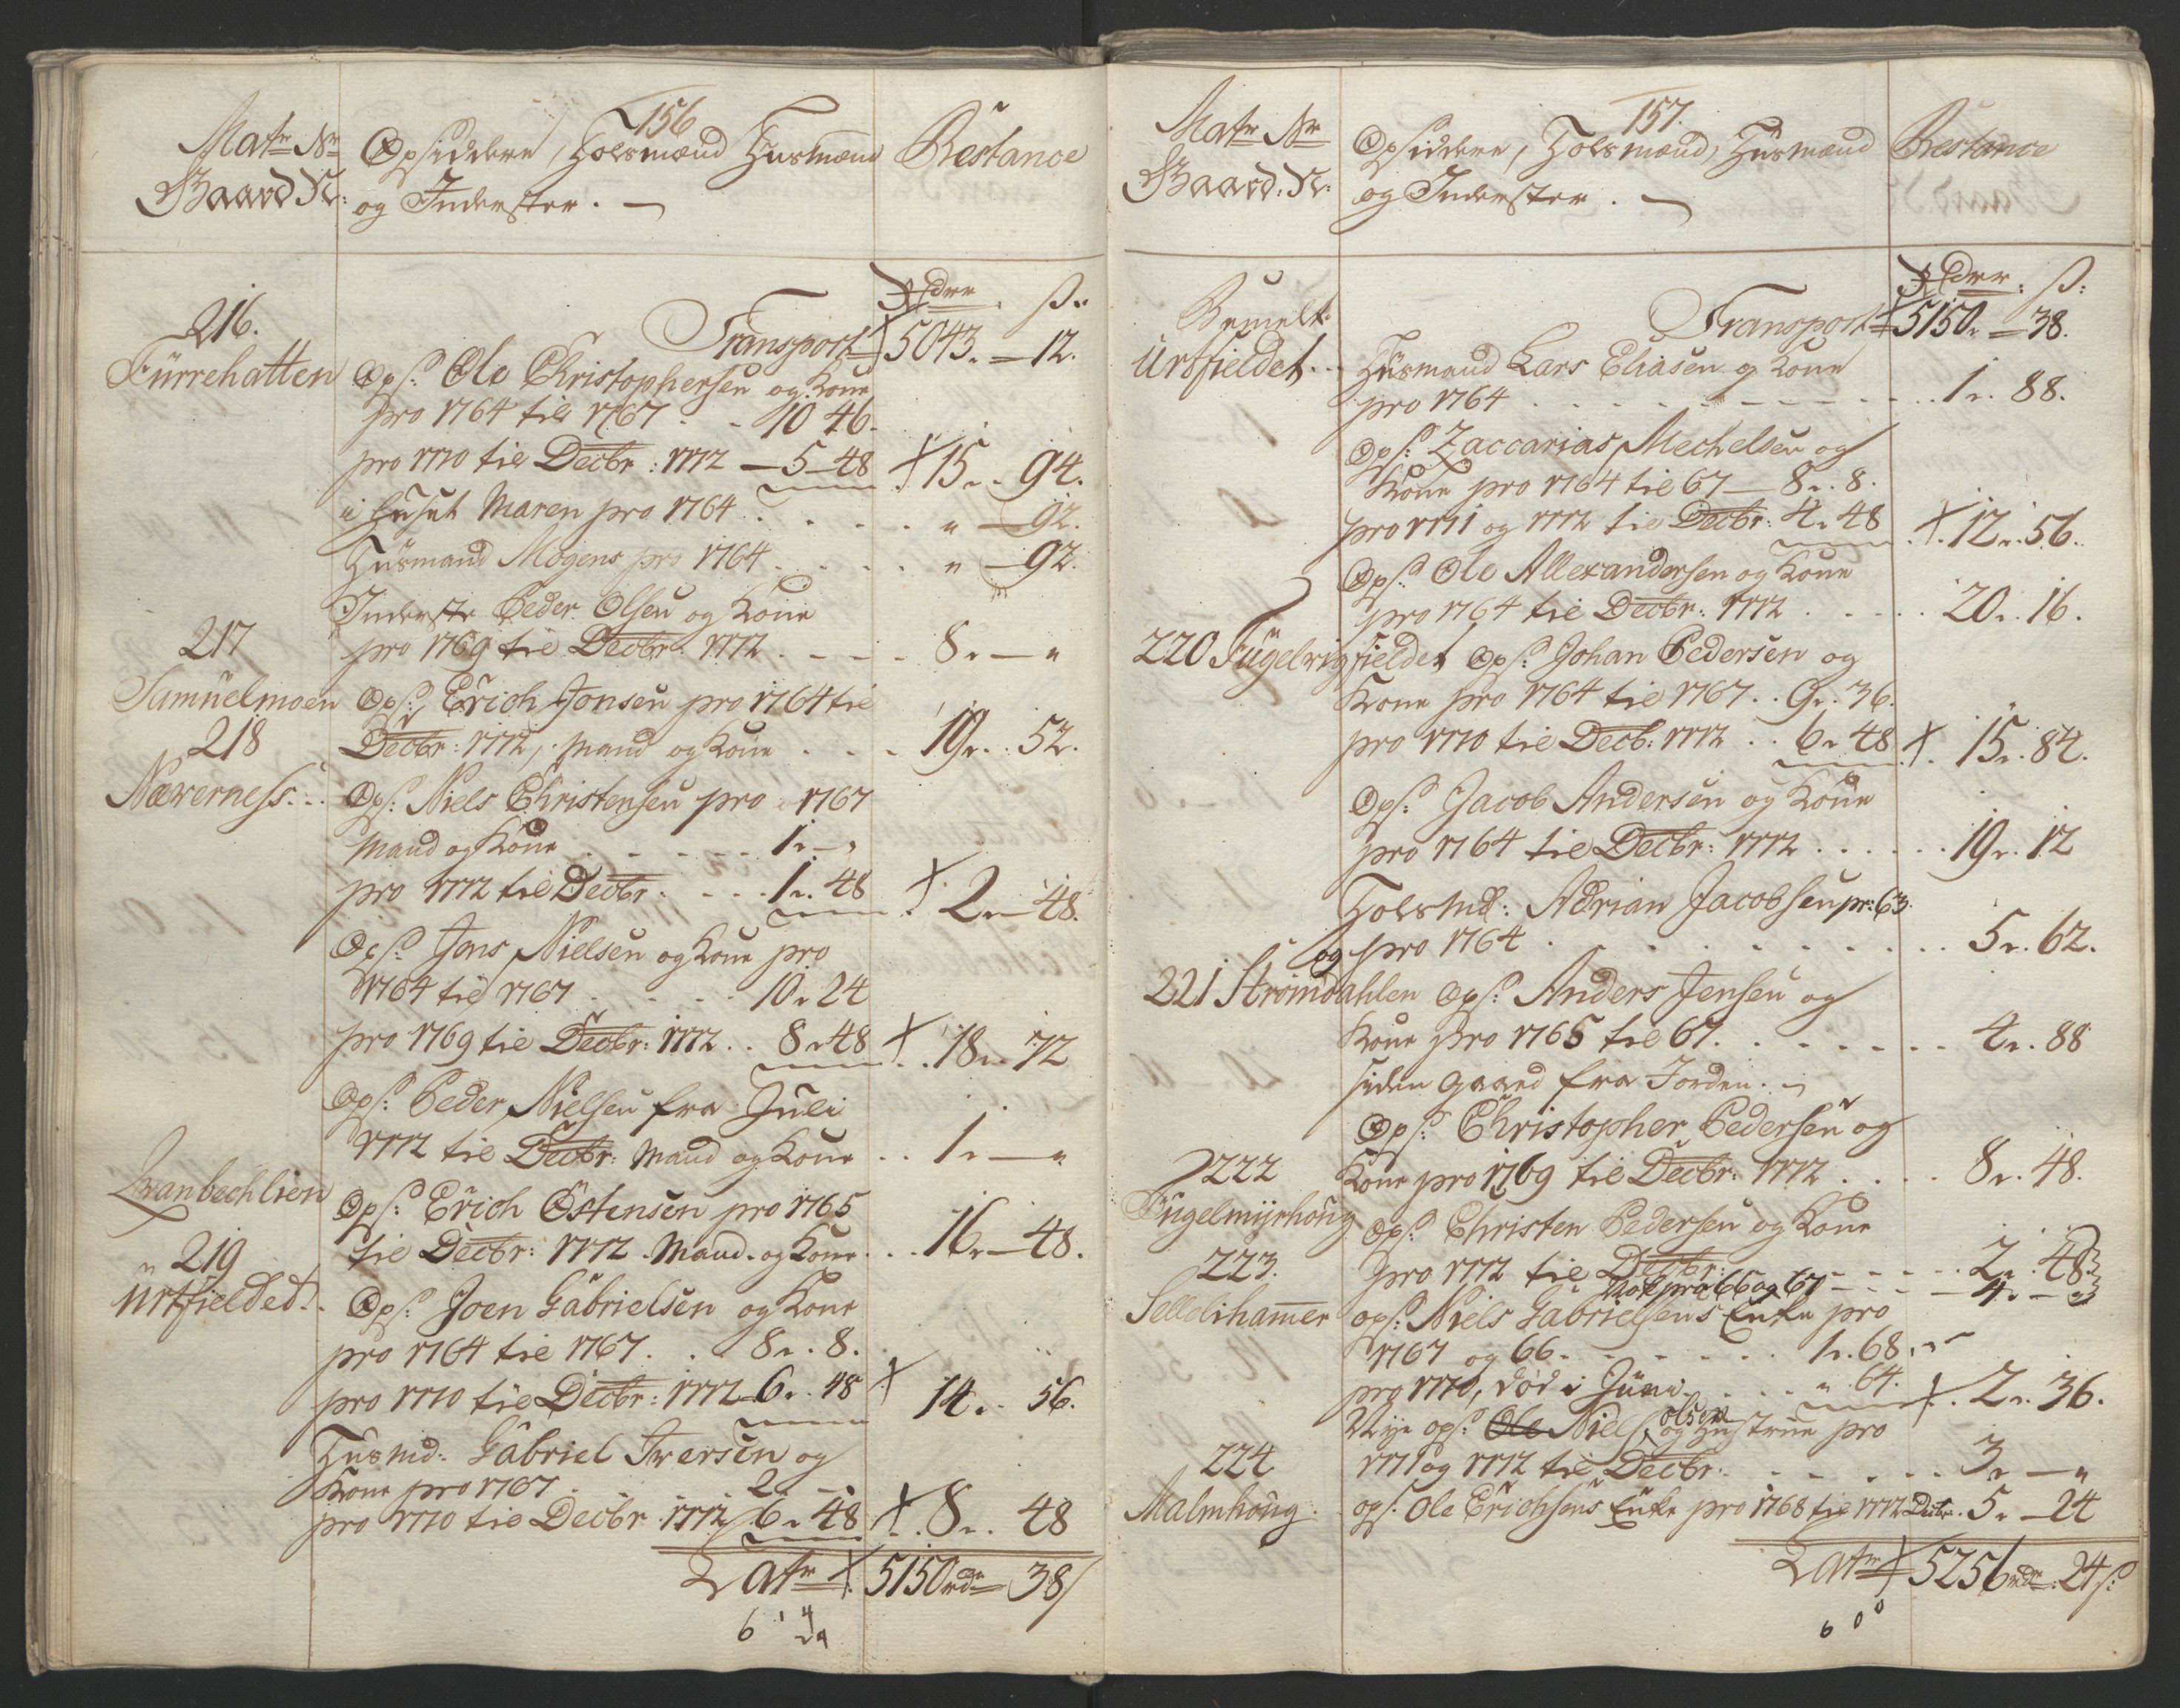 156
Matr Nr Opsiddere, Folsmænd Huusmænd Restance
Gaard N: og Inderster.
Rdr ß.
216. Transport 5043. 12.
Fürrehatten Ops: Ole Christophersen og Kone
pro 1764 til 1767 . . 10 46.
pro 1770 til Decbr: 1772 5 48 15. 94.
i Huset Maren pro 1764 . . . . " 92.
Huusmand Mogens pro 1764 . . . . " 92.
Inderste Peder Olsen og Kone
217 pro 1769 til Decbr 1772 . . . . 8. "
Samuelmoen Ops: Erich Jonsen pro 1764 til
218 Decbr: 1772, Mand og Kone . . . 19. 52.
Næverness . . Ops: Niels Christensen pro 1767
Mand og Kone . . . . . . 1. "
pro 1772 til Decbr . . . 1. 48 2. 48.
Ops: Jens Nielsen og Kone pro
1764 til 1767 . . . . 10. 24
pro 1769 til Decbr: 1772 . . 8. 48 18. 72
Ops: Peder Nielsen fra Juli
1772 til Decbr: Mand og Kone . . 1. "
Ops: Erich Östensen pro 1765
219 til Decbr: 1772. Mand og Kone . . . 16. 48.
Urtfieldet . . Ops: Joen Gabrielsen og Kone
pro 1764 til 1767 . . . 8. 8.
pro 1770 til Decbr: 1772 6. 48 14. 56.
Husmd: Gabriel Iversen og
Kone pro 1767 . . . . 2.
pro 1770 til Decbr 1772 6. 48 8. 48
Latr 5150 rdr 38 ß
6 1 4
157.
Matr Nr Opsiddere, Folsmænd, Huusmænd Restance
Gaard: N: og Inderster.
Rdr: ß:
Bemelt: Transport 5150. 38.
Urtfieldet . . Huusmand Lars Eliasen og Kone
pro 1764 . . . . . . . . . . 1. 88.
Ops: Zaccarias Mechelsen og
Kone pro 1764 til 67 8. 8.
pro 1771 og 1772 til Decbr: 4. 48 12. 56.
Ops: Ole Allexandersen og Kone
pro 1764 til Decbr: 1772 . . . . . 20. 16.
220 Fugelvigfieldet Ops: Johan Pedersen og
Kone pro 1764 til 1767 . . 9. 36.
pro 1770 til Decb: 1772 . . 6. 48 15. 84.
Ops: Jacob Andersen og Kone
pro 1764 til Decbr: 1772 . . . . . . 19. 12
Folsmd: Adrian Jacobsen pr: 63
og pro 1764 . . . . . . . . . . 5. 62.
221 Strömdahlen Ops: Anders Jensen og
Kone pro 1765 til 67. . . . . . . . 4. 88
siden gaaed fra Jorden.
Ops: Christopher Pedersen og
222 Kone pro 1769 til Decbr: 1772 . . . . 8. 48.
Fugelmyrhoug Ops: Christen Pedersen og Kone
223. pro 1772 til Decbr: . . . . . . 2. 48
pro 66 og 67 4.
Ops: Niels Gabrielsens Enke pro
1767 og 66 . . . . . . 1. 68.
pro 1770, död i Juni . . . . " 64. 2. 36.
Nye ops: Ole Niels olsen og Hustrue pro
224 1771 og 1772 til Decbr . . . . . . 3. "
Malmhoug: ops: Ole Erichsens Enke pro 1768 til 1772 Decbr. 5. 24
Latr 5256 rdr: 24 ß:
6 0 0